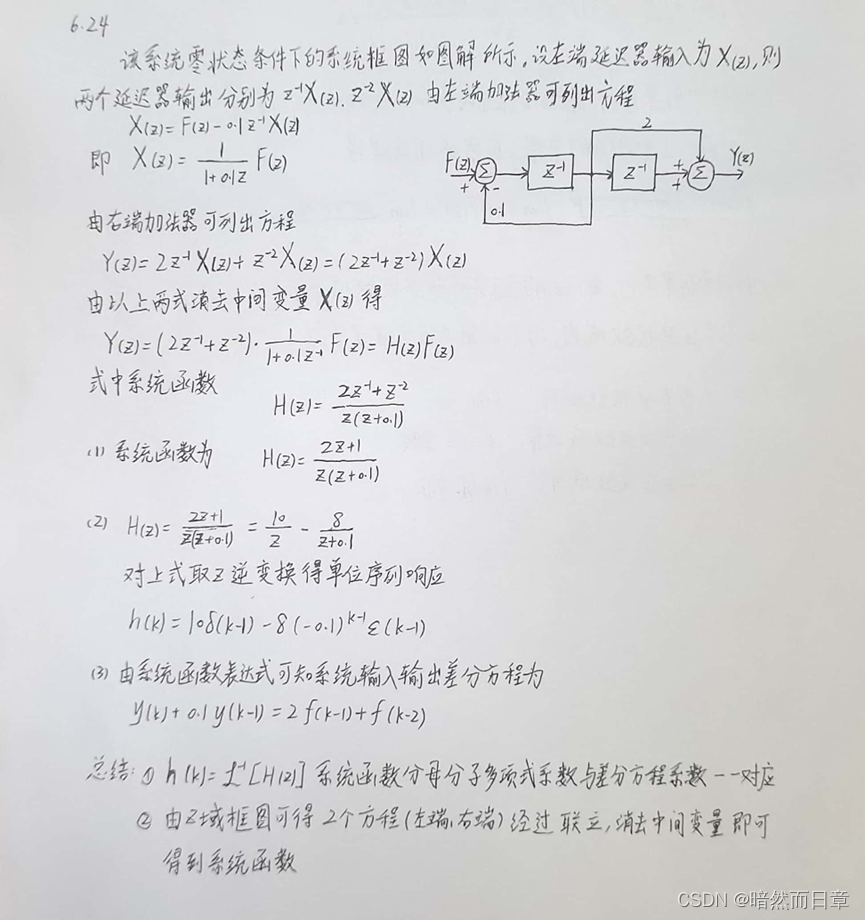 6.24
该系统零状态条件下的系统框图如图解所示,设左端延迟器输入为X(z),则
两个延迟器输出分别为z⁻¹X(z).z⁻²X(z) 由左端加法器可列出方程
X(z)=F(z)-0.1z⁻¹X(z)
即 X(z)=1/(1+0.1z) F(z)
2
F(z) + Σ - z⁻¹ z⁻¹ + + Σ Y(z)
0.1
由右端加法器可列出方程
Y(z)=2z⁻¹X(z)+z⁻²X(z)=(2z⁻¹+z⁻²)X(z)
由以上两式消去中间变量X(z)得
Y(z)=(2z⁻¹+z⁻²)·1/(1+0.1z⁻¹) F(z)=H(z)F(z)
式中系统函数 H(z)=(2z⁻¹+z⁻²)/(z(z+0.1))
(1) 系统函数为 H(z)=(2z+1)/(z(z+0.1))
(2) H(z)=(2z+1)/(z(z+0.1))=10/z-8/(z+0.1)
对上式取Z逆变换得单位序列响应
h(k)=10δ(k-1)-8(-0.1)ᵏ⁻¹ε(k-1)
(3) 由系统函数表达式可知系统输入输出差分方程为
y(k)+0.1y(k-1)=2f(k-1)+f(k-2)
总结:① h(k)=ℒ⁻¹[H(z)] 系统函数分母分子多项式系数与差分方程系数一一对应
② 由Z域框图可得2个方程(左端,右端)经过联立,消去中间变量即可
得到系统函数
CSDN @暗然而日章